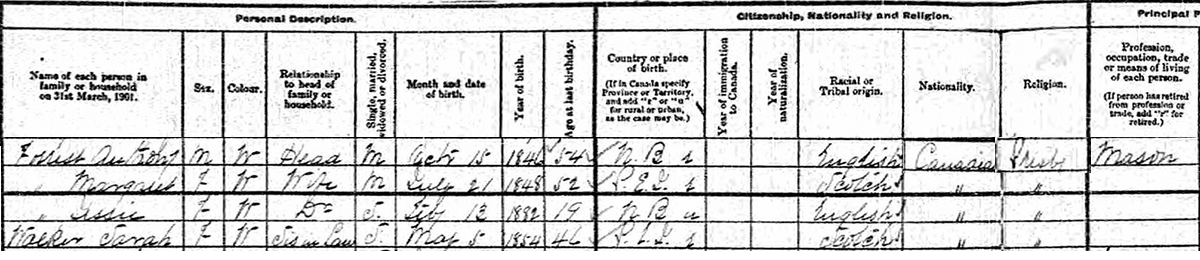 Personal Description. Citizenship, Nationality and Religion. Principal P
Name of each person in family or household on 31st March, 1901. Sex. Colour. Relationship to head of family or household. Single, married, widowed or divorced. Month and date of birth. Year of birth. Age at last birthday. Country or place of birth. (If in Canada specify Province or Territory, and add "r" or "u" for rural or urban, as the case may be.) Year of immigration to Canada. Year of naturalization. Racial or Tribal origin. Nationality. Religion. Profession, occupation, trade or means of living of each person. (If person has retired from profession or trade, add "r" for retired.)
Forrest M W Head M Oct 15 1846 54 N. B r English Canadia Presb Mason
" Margaret F W Wife M July 21 1848 52 P. E. I. r Scotch " "
" Essie F W Dr S. Feb 13 1882 19 N B English " "
Walker Sarah F W Sis in Law S. Mar 5 1854 46 P. E. I. r Scotch " "